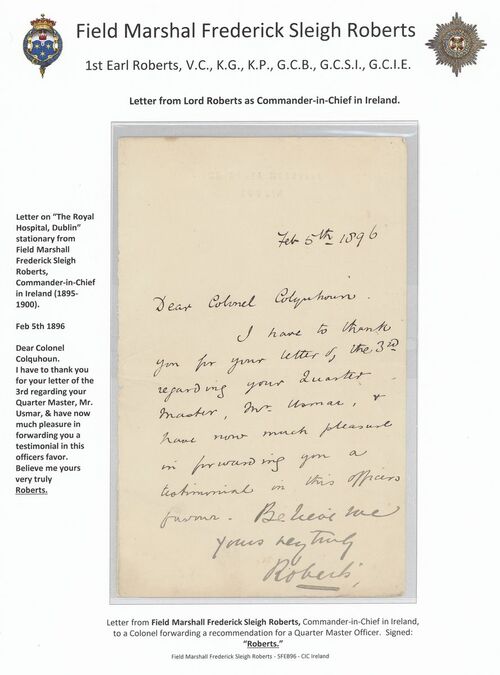 Field Marshal Frederick Sleigh Roberts
1st Earl Roberts, V.C., K.G., K.P., G.C.B., G.C.S.I., G.C.I.E.
Letter from Lord Roberts as Commander-in-Chief in Ireland.
Letter on “The Royal
Hospital, Dublin”
stationary from
Field Marshall
Frederick Sleigh
Roberts,
Commander-in-Chief
in Ireland (1895-
1900).
Feb 5th 1896
Dear Colonel
Colquhoun.
I have to thank you
for your letter of the
3rd regarding your
Quarter Master, Mr.
Usmar, & have now
much pleasure in
forwarding you a
testimonial in this
officers favor.
Believe me yours
very truly
Roberts.
Feb 5th 1896
Dear Colonel Colquhoun.
I have to thank
you for your letter of the 3rd
regarding your Quarter
Master, Mr. Usmar, &
have now much pleasure
in forwarding you a
testimonial in this officers
favour. Believe me
yours very truly
Roberts,
Letter from Field Marshall Frederick Sleigh Roberts, Commander-in-Chief in Ireland,
to a Colonel forwarding a recommendation for a Quarter Master Officer. Signed:
“Roberts.”
Field Marshall Frederick Sleigh Roberts - SFEB96 - CIC Ireland